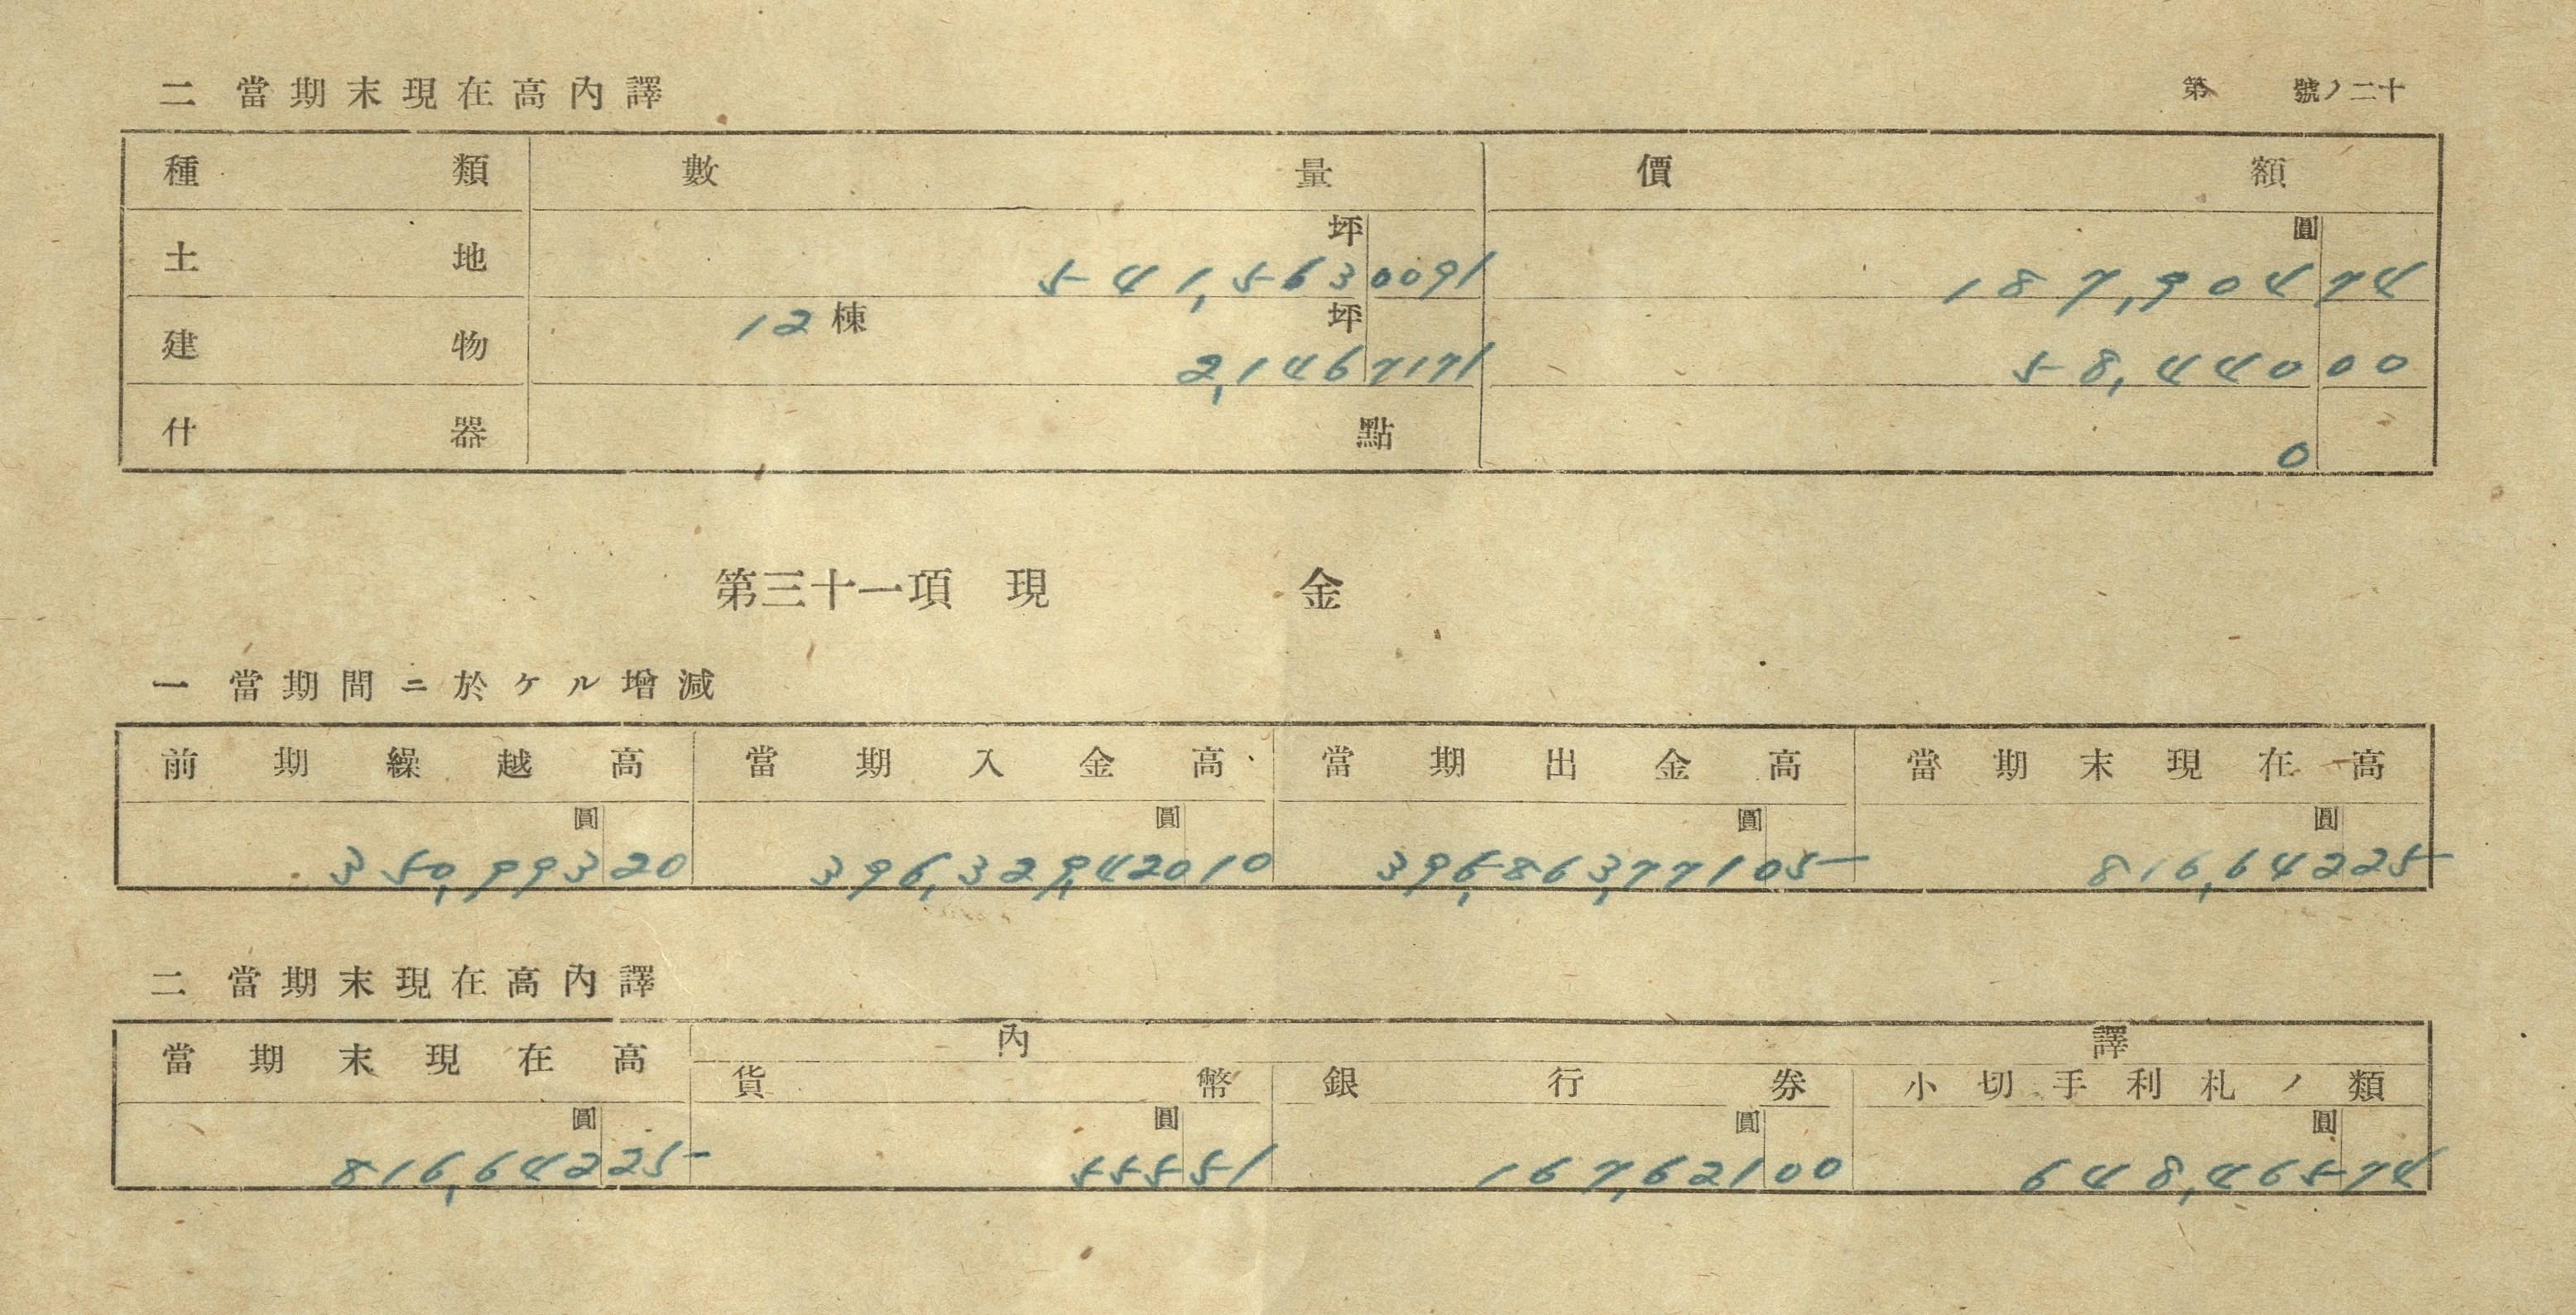 二 當期末現在高內譯 第 號ノ二十
種類 數量 價額
土地 坪 541,563 0091 圓 187,904 74
建物 12棟 坪 2,146 7171 58,440 00
什器 點 0
第三十一項 現金
一 當期間ニ於ケル增減
前期繰越高 當期入金高 當期出金高 當期末現在高
圓 圓 圓 圓
350,993 20 396,329,420 10 395,863,771 05 816,642 25
二 當期末現在高內譯
當期末現在高 內譯
貨幣 銀行券 小切手利札ノ類
圓 圓 圓 圓
816,642 25 555 51 167,621 00 648,465 74